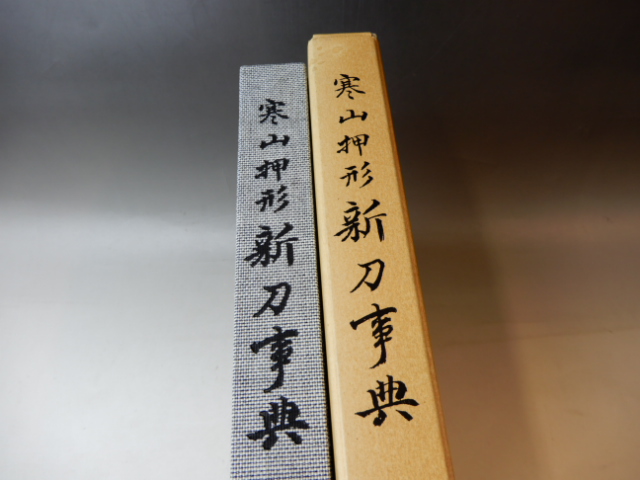 寒山押形 新刀事典
寒山押形 新刀事典